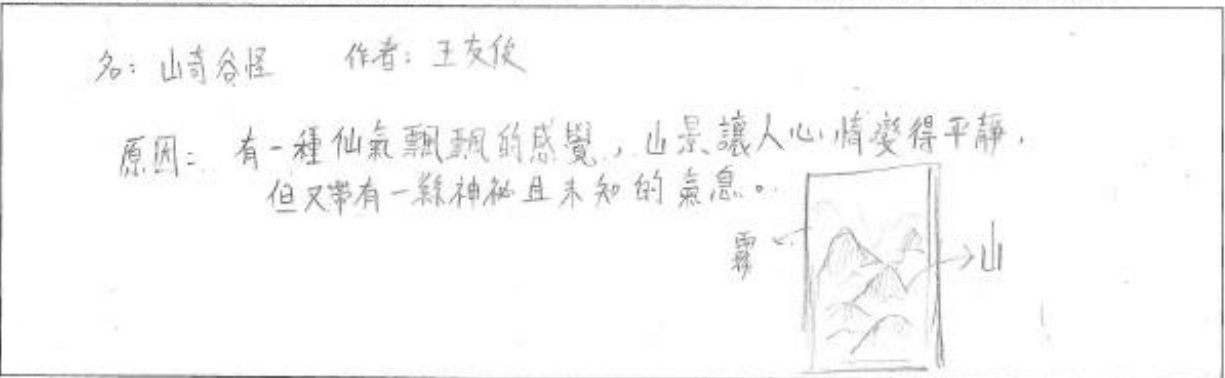 名：山奇谷怪　作者：王友俊
原因：有一種仙氣飄飄的感覺，山景讓人心情變得平靜，
但又帶有一絲神祕且未知的氣息。
霧
山